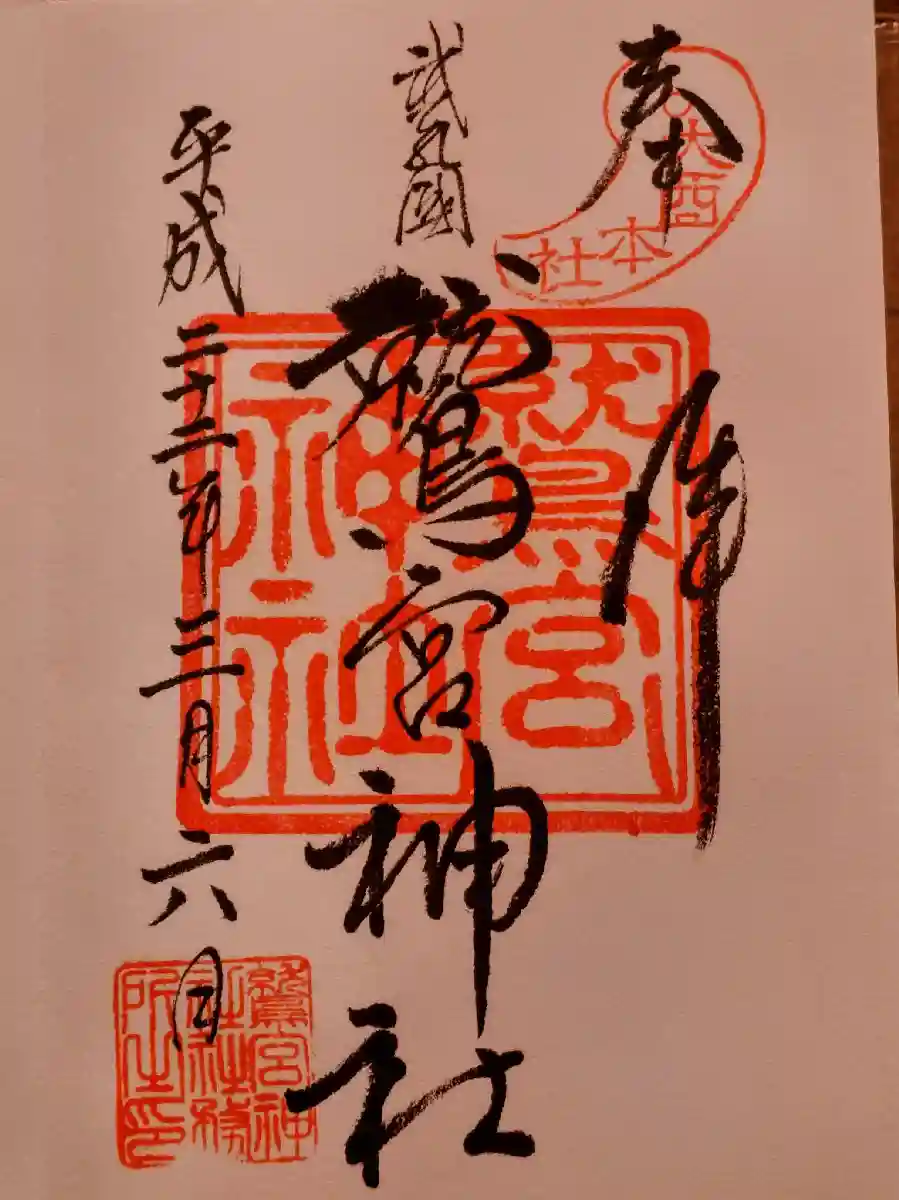 酉
本社
奉拝
武蔵國
鷲宮神社
鷲宮
神社
平成二十二年三月六日
鷲宮神
社社務
所之印